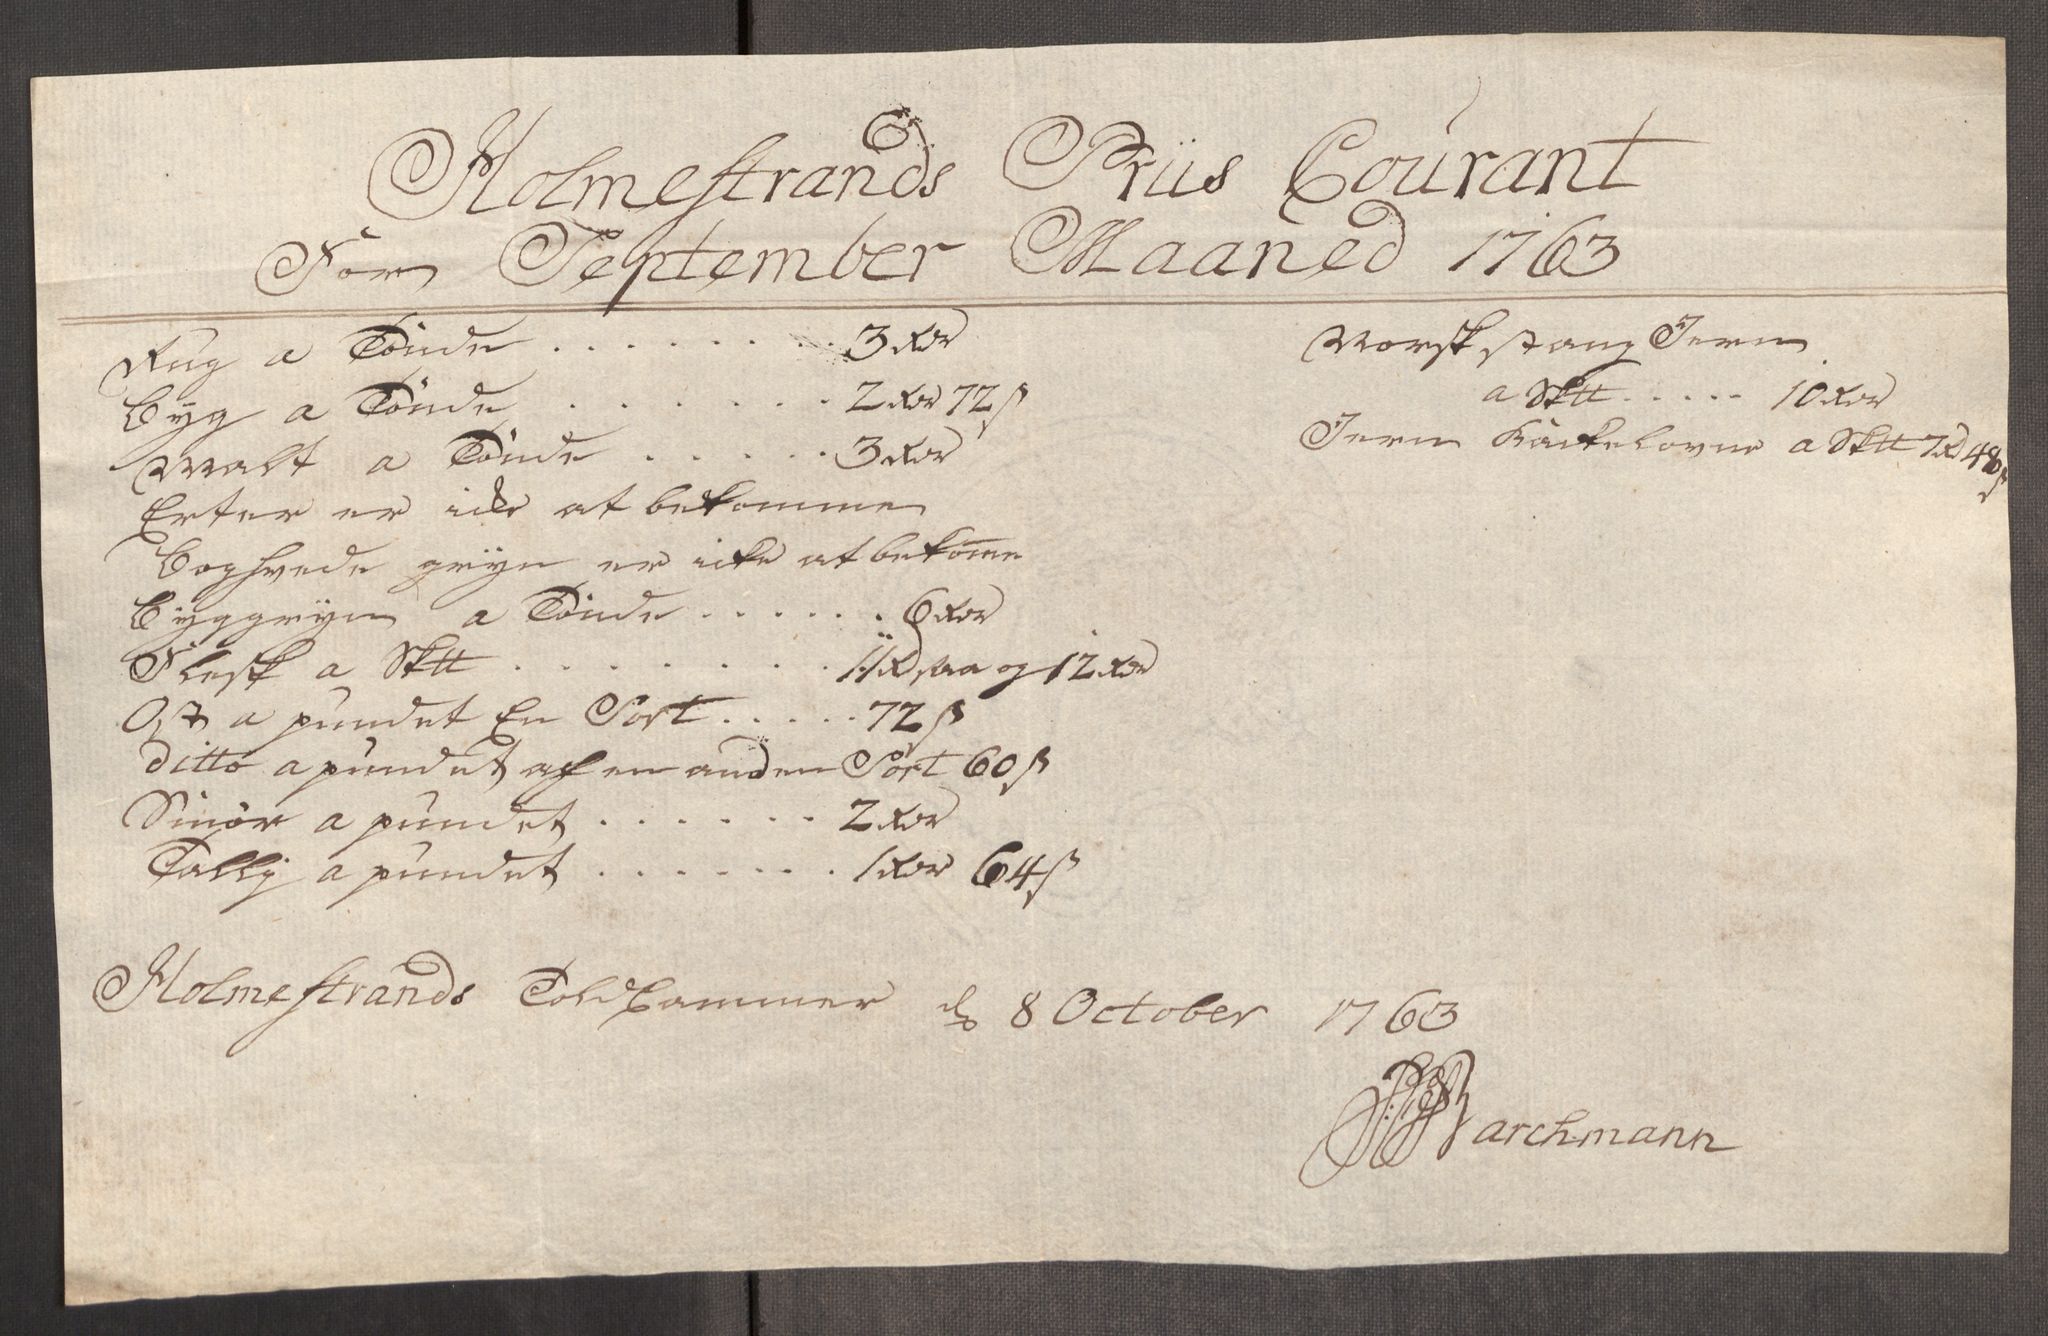 Holmestrands Priis Courant
For September Maaned 1763
Rug a Tønde . . . . . . . . 3 Rdr
Byg a Tønde . . . . . . . 2 Rdr 72 ß
Malt a Tønde . . . . . 3 Rdr
Erter er icke at bekomme
Boghvede gryn er icke at bekom̅e
Byggryn a Tønde . . . . . . 6 Rdr
Flesk a Sktt . . . . . . . . . 11 Rd saa og 12 Rdr
Ost a pundet En Sort . . . . . 72 ß
ditto a pundet af en anden Sort 60 ß
Smør a pundet . . . . . . 2 Rdr
Tallig a pundet . . . . . . . 1 Rdr 64 ß
Norsk stang Jern
a Sktt . . . . . 10 Rdr
Jern Kackelovne a Sktt 7 Rd 48 ß
Holmestrands Told Cammer d 8 October 1763
Barchmann